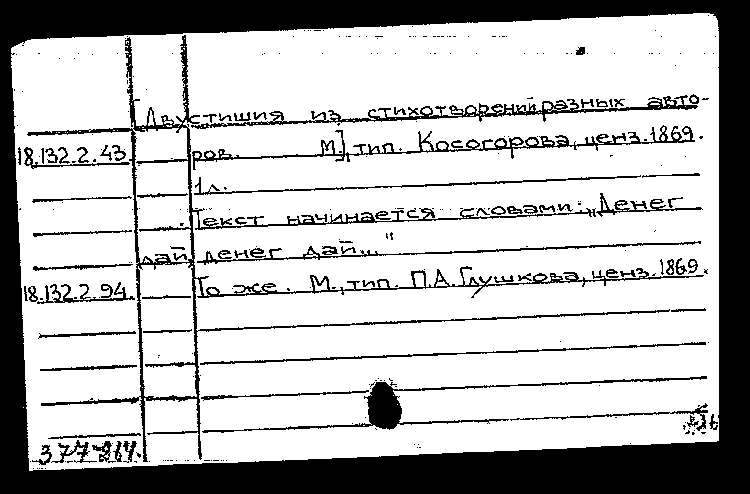 [Двустишия из стихотворений разных авто-
18.132.2.43 ров. М.], тип. Косогорова, ценз. 1869.
1 л.
Текст начинается словами: „Денег
дай, денег дай..."
18.132.2.94. То же. М., тип. П.А. Глушкова, ценз. 1869.